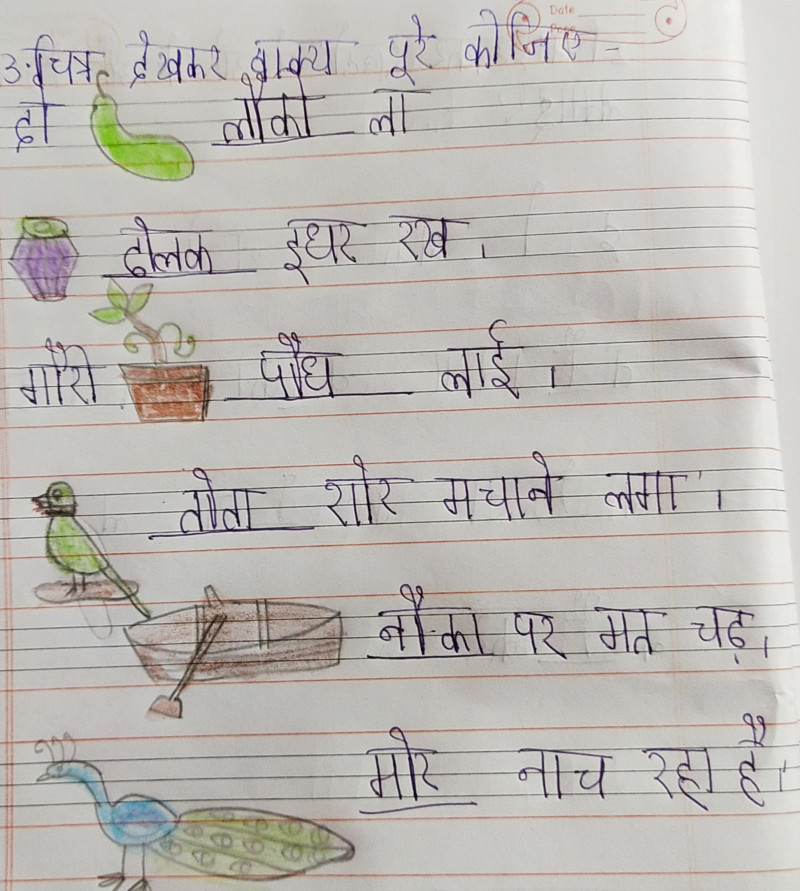 Date
3. चित्र देखकर वाक्य पूरे कीजिए -
दो लौकी ला
ढोलक इधर रख ।
गौरी पौधा लाई ।
तोता शोर मचाने लगा ।
नौका पर मत चढ़ ।
मोर नाच रहा है ।